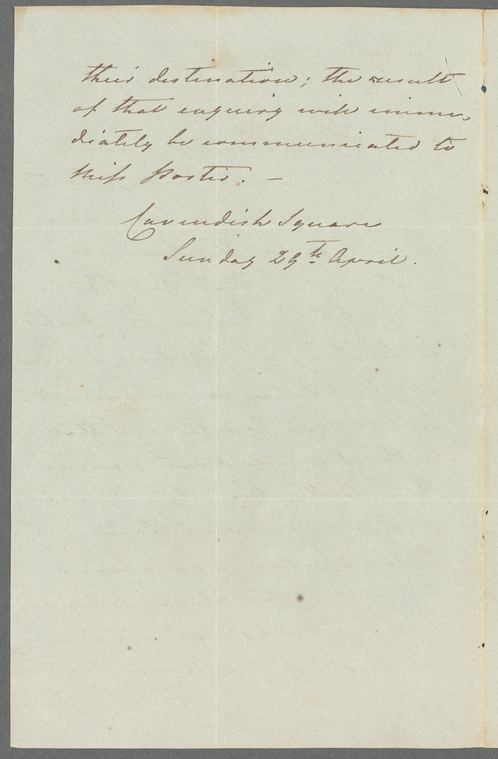 their destination; the result
of that enquiry will imme-
diately be communicated to
Miss Porter. —
Cavendish Square
Sunday 29th April.